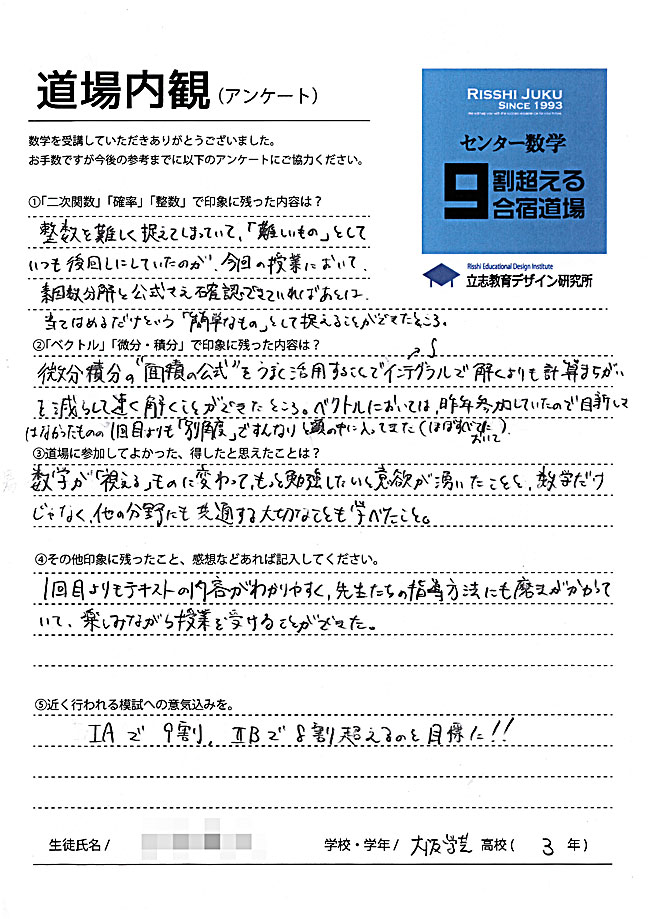 道場内観(アンケート)
RISSHI JUKU
SINCE 1993
センター数学
9割超える
合宿道場
Risshi Educational Design Institute
立志教育デザイン研究所
数学を受講していただきありがとうございました。
お手数ですが今後の参考までに以下のアンケートにご協力ください。
①「二次関数」「確率」「整数」で印象に残った内容は?
整数を難しく捉えてしまっていて、「難しいもの」として
いつも後回しにしていたのが、今回の授業において、
素因数分解と公式さえ確認できていればあとは、
当てはめるだけという「簡単なもの」として捉えることができたところ。
②「ベクトル」「微分・積分」で印象に残った内容は?
微分積分の"面積の公式"をうまく活用することで インテグラルで解くよりも計算まちがい
∫
を減らして速く解くことができたところ。ベクトルにおいては、昨年参加していたので目新しく
はなかったものの1回目よりも「別角度」ですんなりと頭の中に入ってきた(ほぼすべてに
おいて).
③道場に参加してよかった、得したと思えたことは?
数学が「視える」ものに変わって、もっと勉強したいと意欲が湧いたことと、数学だけ
じゃなく、他の分野にも共通する大切なことも学べたこと。
④その他印象に残ったこと、感想などあれば記入してください。
1回目よりもテキストの内容がわかりやすく、先生たちの指導方法にも磨きがかかって
いて、楽しみながら授業を受けることができた。
⑤近く行われる模試への意気込みを。
ⅠAで 9割, ⅡBで8割超えるのを目標だ!!
生徒氏名 /
学校・学年 / 大阪学芸 高校 ( 3 年 )